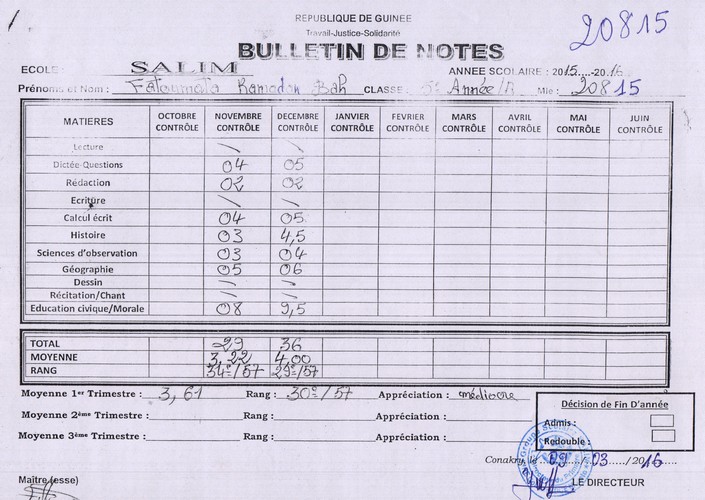 REPUBLIQUE DE GUINEE
20815
Travail-Justice-Solidarité
BULLETIN DE NOTES
ECOLE : SALIM ANNEE SCOLAIRE : 2015....-2016
Prénoms et Nom : Fatoumata Ramadan Bah CLASSE : 5è Année/B Mle : 20815
MATIERES OCTOBRE CONTRÔLE NOVEMBRE CONTRÔLE DECEMBRE CONTRÔLE JANVIER CONTRÔLE FEVRIER CONTRÔLE MARS CONTRÔLE AVRIL CONTRÔLE MAI CONTRÔLE JUIN CONTRÔLE
Lecture \ \
Dictée-Questions 04 05
Rédaction 02 02
Ecriture \ \
Calcul écrit 04 05
Histoire 03 4,5
Sciences d'observation 03 04
Géographie 05 06
Dessin \ \
Récitation/Chant \ \
Education civique/Morale 08 9,5
TOTAL 29 36
MOYENNE 3,22 4,00
RANG 34è/57 29è/57
Moyenne 1er Trimestre : 3,61 Rang : 30è/57 Appréciation : médiocre
Moyenne 2ème Trimestre : Rang : Appréciation :
Moyenne 3ème Trimestre : Rang : Appréciation :
Décision de Fin D'année
Admis :
Redouble :
Conakry, le 09/03/2016
Maître(esse) LE DIRECTEUR